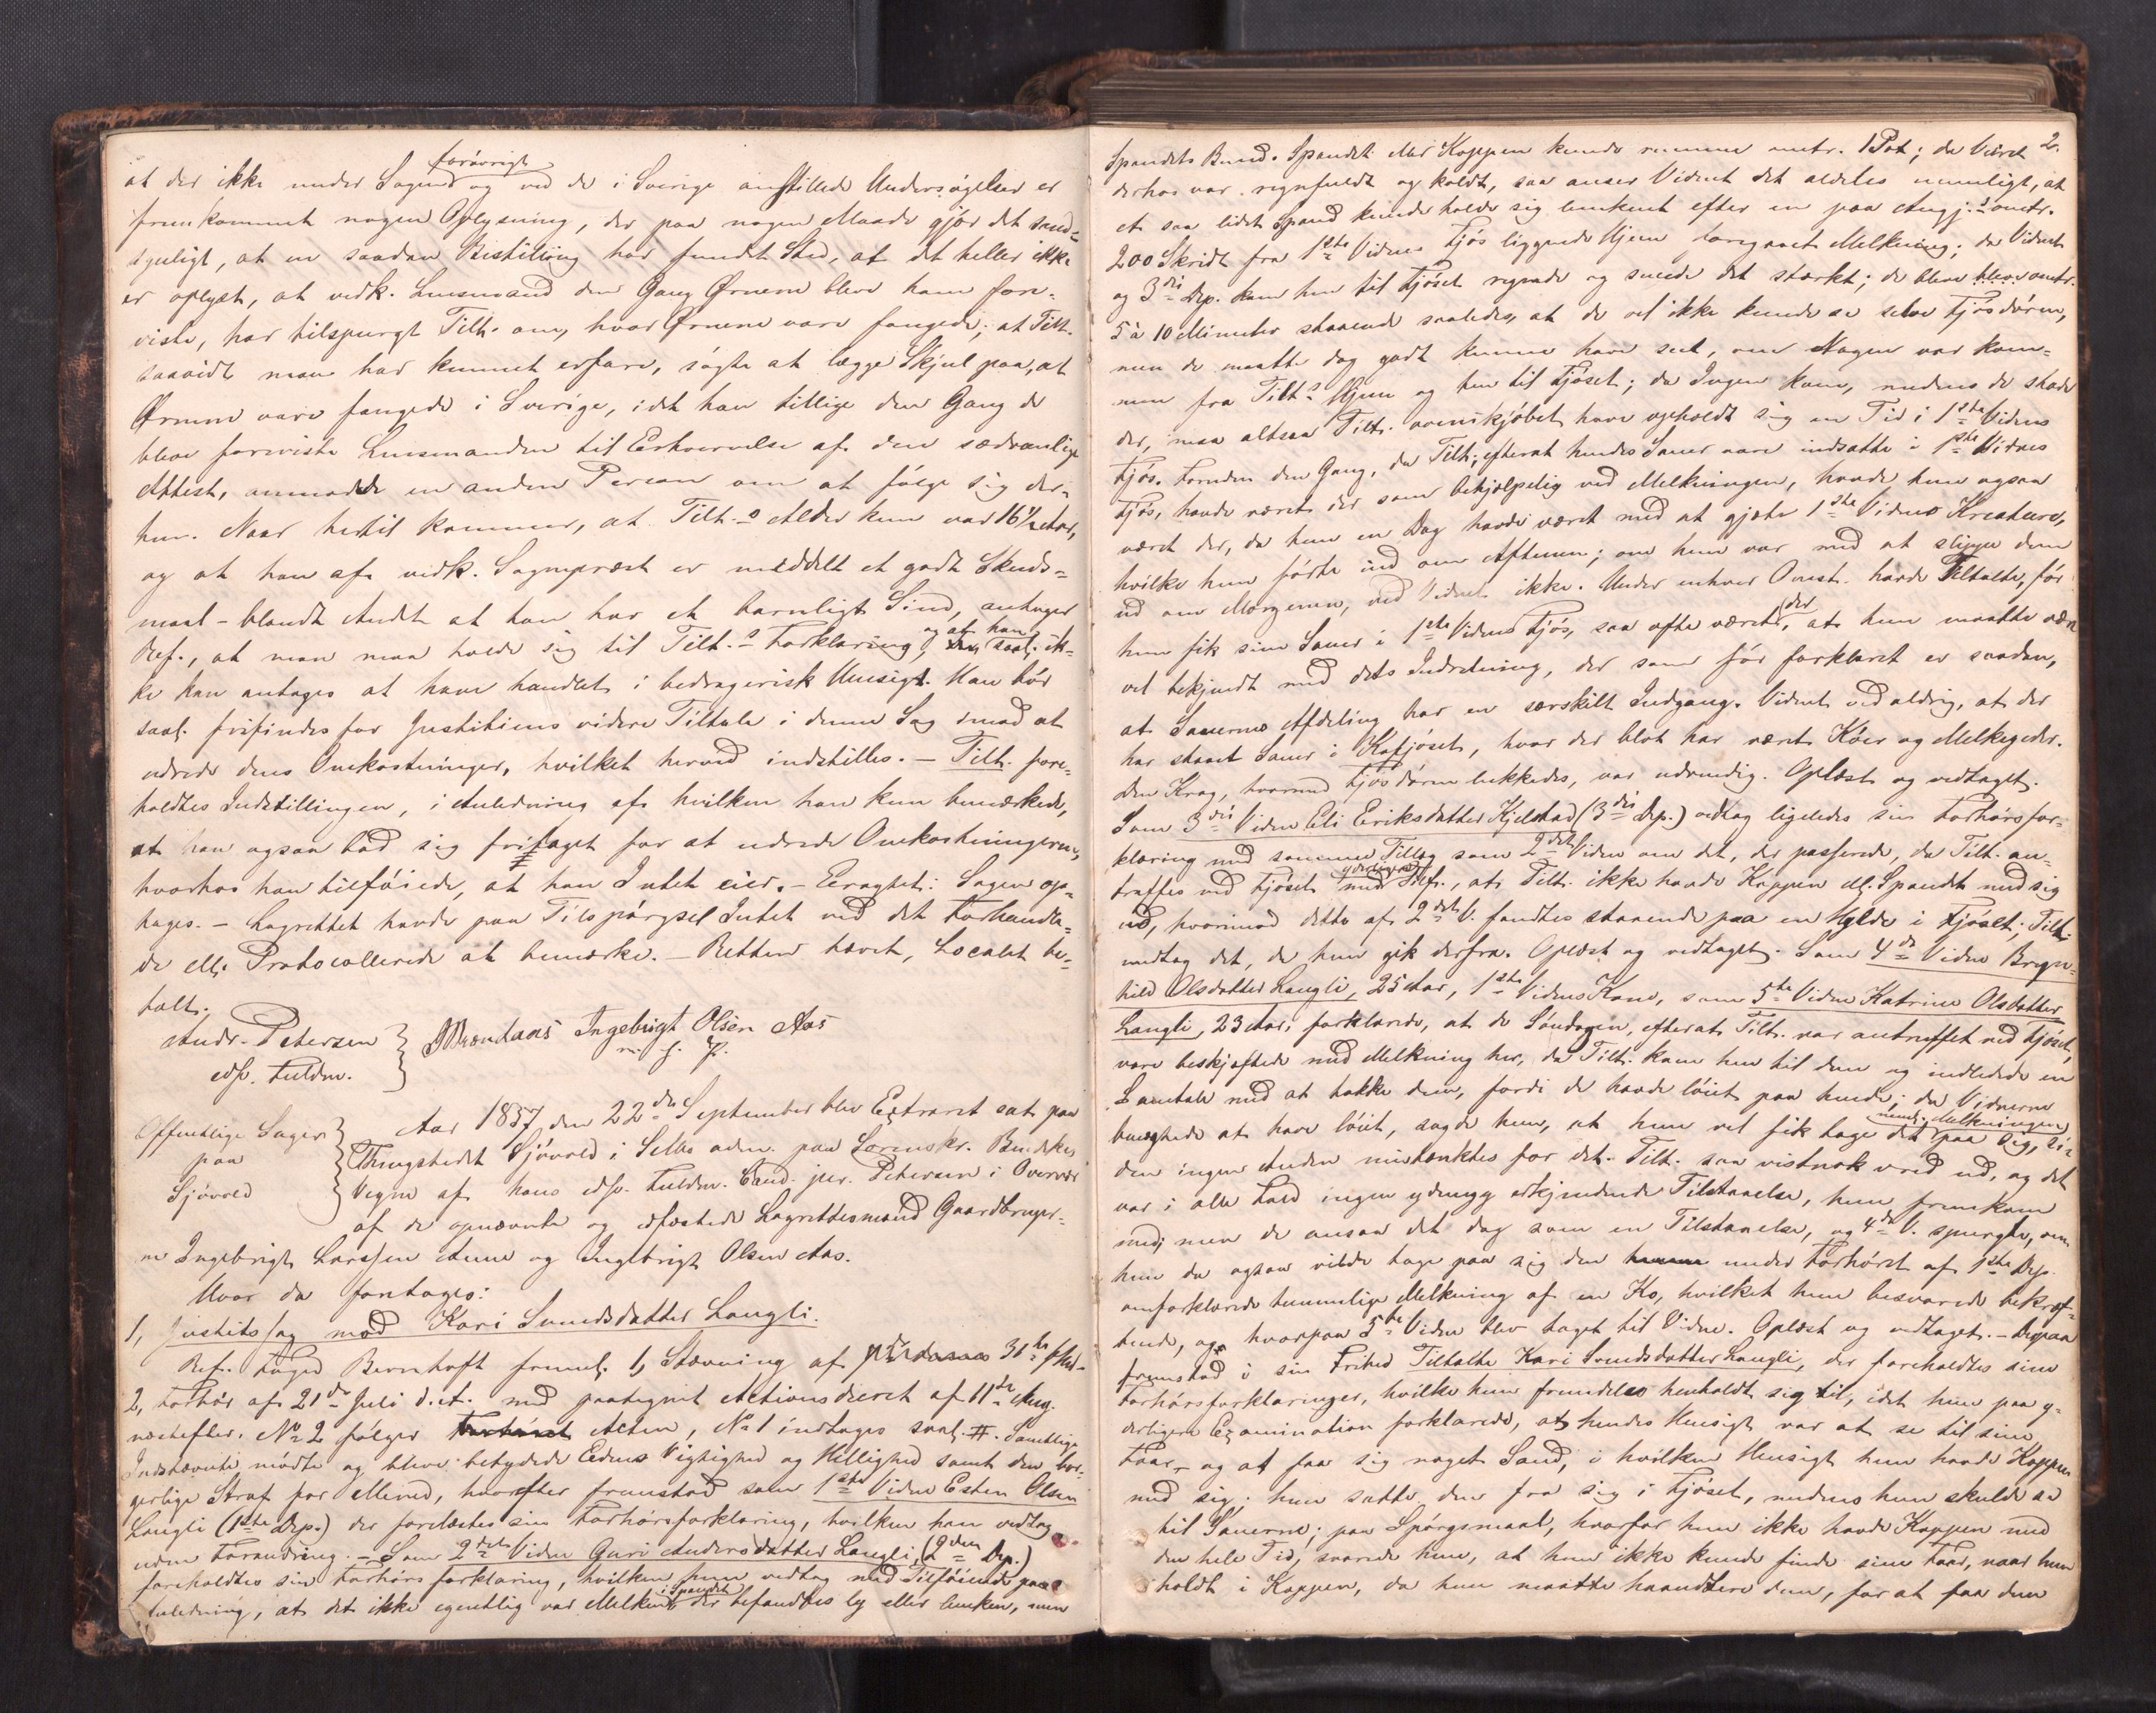 at der ikke under Sagen forøvrigt og ved de i Sverige anstillede Undersøgelser er
fremkommet nogen Oplysning, der paa nogen Maade gjör det sand-
synligt, at en saadan Bestilling har fundet Sted, at det heller ikke
er oplyst, at vedk. Lensmand den Gang Ørnene bleve ham fore-
viste, har tilspurgt Tilt. om, hvor Ørnene vare fangede; at Tilt.
saavidt man har kunnet erfare, søgte at lægge Skjul paa, at
Ørnene vare fangede i Sverige, idet han tillige den Gang de
bleve foreviste Lensmanden til Erhvervelse af den sædvanlige
Attest, anmodede en anden Person om at følge sig der-
hen. Naar hertil kommer, at Tilt.s Alder kun var 16½ Aar,
og at han af vedk. Sognepræst er meddelt et godt Skuds-
maal - blandt Andet at han har et barnligt Sind, antager
Ref., at man maa holde sig til Tilt.s Forklaring, og at han saal. ik-
ke kan antages at have handlet i bedragerisk Hensigt. Han bör
saal. frifindes for Justitiens videre Tiltale i denne Sag imod at
udrede dens Omkostninger, hvilket herved indstilles. - Tilt. fore-
holdtes Indstillingen, i Anledning af hvilken han kun bemærkede,
at han ogsaa bad sig fritaget for at udrede Omkostningerne,
hvorhos han tilföiede, at han Intet eier. - Eragtet: Sagen op-
tages. - Lagrettet havde paa Tilspørgsel Intet ved det Forhandle-
de ell. Protocollerede at bemærke. - Retten hævet, Localet be-
talt.
Andr. Petersen
edsv. Fuldm.
Ingebrigt Olsen Aas
m. f. P.
Offentlige Sager
paa
Sjövold
Aar 1887 den 22de September blev Extraret sat paa
Thingstedet Sjövold i Selbu adm. paa Sorenskr.
Vegne af hans edsv. Fuldm. Cand. jur. Petersen i Overvær
af de opnævnte og edfæstede Lagrettesmænd Gaardbruger-
ne Ingebrigt Larssen Aune og Ingebrigt Olsen Aas.
Hvor da foretages:
1, Justitssag mod Kari Svendsdatter Langli.
Ref. Foged Bernhoft freml. 1, Stævning af 31te f. Md.
2, Forhör af 21de Juli d. A. med paategnet Actionsdecret af 11te Aug.
næstefter. No 2 følger Acten, No 1 indtages saal. #. Samtlige
Indstævnte mødte og bleve betydede Edens Vigtighed og Hellighed samt den bor-
gerlige Straf for Mened, hvorefter fremstod som 1ste Vidne Esten Olsen
Langli (1ste Dep.) der forelæstes sin Forhørsforklaring, hvilken han vedtog
uden Forandring. - Som 2det Vidne Guri Andersdatter Langli (2den Dep.)
foreholdtes sin Forhørsforklaring, hvilken hun vedtog med Tilföiende paa
Anledning, at det ikke egentlig var Melken i Spandet der befandtes ly eller lunken, men
2.
Spandets Bund. Spandet eller Koppen kunde rumme omtr. 1 Pot; da Veiret
derhos var regnfuldt og koldt, saa anser Vidnet det aldeles umuligt, at
et saa lidet Spand kunde holde sig lunkent efter en paa Angj.s omtr.
200 Skridt fra 1ste Vidnes Fjös liggende Hjem foregaaet Melkning; da Vidnet
og 3die Dep. kom hen til Fjöset regnede og sneede det stærkt; de bleve omtr.
5 à 10 Minuter staaende saaledes, at de vel ikke kunde se selve Fjösdøren,
men de maatte dog godt kunne have seet, om Nogen var kom-
men fra Tilt.s Hjem og hen til Fjöset; da Ingen kom, medens de stode
der, maa altsaa Tilt. have opholdt sig en Tid i 1ste Vidnes
Fjös. Foruden den Gang, da Tilt., efterat hendes Sauer vare indsatte i 1ste Vidnes
Fjös, havde været der som behjælpelig ved Melkningen, havde hun ogsaa
været der, da hun en Dag havde været med at gjæte 1ste Vidnes Kreature,
hvilke hun førte ind om Aftenen; om hun var med at slippe dem
ud om Morgenen, ved Vidnet ikke. Under enhver Omst. havde Tiltalte, før
hun fik sine Sauer i 1ste Vidnes Fjös, saa ofte været der, at hun maatte være
vel bekjendt med dets Indretning, der som før forklaret er saadan,
at Sauernes Afdeling har en særskilt Indgang. Vidnet ved aldrig, at der
har staaet Sauer i Kofjöset, hvor der blot har været Köer og Melkegeder.
Den Krog, hvormed Fjösdøren lukkedes, var udvendig. Oplæst og vedtaget.
Som 3die Vidne Eli Eriksdatter Kjelstad (3die Dep.) vedtog ligeledes sin Forhørsfor-
klaring med samme Tillæg som 2det Vidne om det, der passerede, da Tilt. an-
traffes ved Fjöset med yderligere Tilf., at Tilt. ikke havde Koppen ell. Spandet med sig
ud, hvorimod dette af 2det V. fandtes staaende paa en Hylde i Fjöset; Tilt.
medtog det, da hun gik derfra. Oplæst og vedtaget. Som 4de Vidne Bryn-
hild Olsdatter Langli, 25 Aar, 1ste Vidnes Kone, som 5te Vidne Katrine Olsdatter
Langli, 23 Aar, forklarede, at de Søndagen, efterat Tilt. var antruffet ved Fjöset,
vare beskjæftede med Melkning her, da Tilt. kom hen til dem og indledede en
Samtale med at takke dem, fordi de havde löiet paa hende; da Vidnerne
benegtede at have löiet, sagde hun, at hun vel fik tage det nemlig Melkningen paa sig, si-
den ingen Anden mistænktes for det. Tilt. saa vistnok vred ud, og det
var i alle Fald ingen ydmyg erkjendende Tilstaaelse, hun fremkom
med; men de ansaa det dog som en Tilstaaelse, og 4de V. spurgte, om
hun da ogsaa vilde tage paa sig den under Forhøret af 1ste Dep.
omforklarede hemmelige Melkning af en Ko, hvilket hun besvarede bekræf-
tende, og hvorpaa 5te Vidne blev taget til Vidne. Oplæst og vedtaget. - Derpaa
fremstod i sin Frihed Tiltalte Kari Svendsdatter Langli, der foreholdtes sine
Forhørsforklaringer, hvilke hun fremdeles henholdt sig til, idet hun paa y-
derligere Examination forklarede, at hendes Hensigt var at se til sine
Faar - og at faa sig noget Sand, i hvilken Hensigt hun havde Koppen
med sig; hun satte den fra sig i Fjöset, medens hun skulde se
til Sauerne; paa Spørgsmaal, hvorfor hun ikke havde Koppen med
den hele Tid, svarede hun, at hun ikke kunde finde sine Faar, naar hun
holdt i Koppen, da hun maatte haandtere dem, for at faa dem